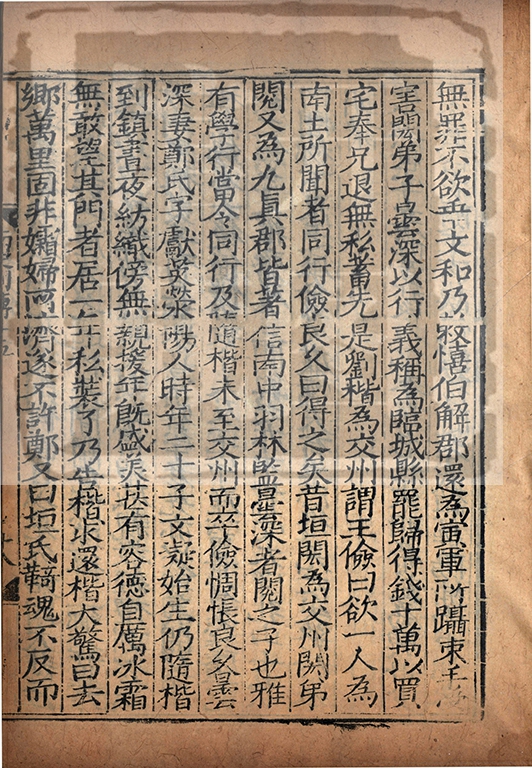 無罪不欲乖文和乃敕憘伯解郡還為寅軍所躡束手
害閎弟子曇深以行義稱為臨城縣罷歸得錢十萬以買
宅奉兄退無私蓄先是劉楷為交州謂王儉曰欲一人為
南土所聞者同行儉良久曰得之矣昔垣閎為交州閎弟
閱又為九真郡皆著信南中羽林監曇深者閱之子也雅
有學行當令同行及隨楷未至交州而卒儉惆悵良久曇
深妻鄭氏字獻英滎陽人時年二十子文凝始生仍隨楷
到鎮晝夜紡織傍無親援年既盛美甚有容德自厲冰霜
無敢望其門者居一年私裝了乃告楷求還楷大驚曰去
鄉萬里固非孀婦所濟遂不許鄭又曰垣氏羇魂不反而